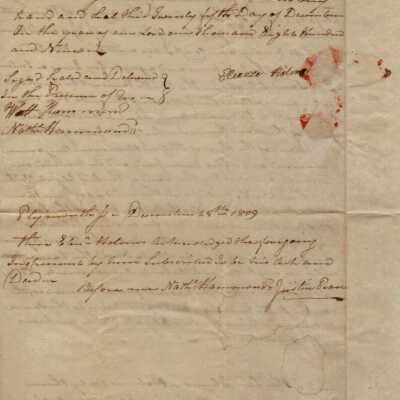 hand and Seal this Twenty fifth Day of December
In the year of our Lord one Thousand Eight Hundred
and Nine
Signed Sealed and Delivered
in the Presence of us
Eleazer Holmes
Watt Hammond
Nathl Hammond
Plymouth Ss December 25th 1809
then Elezr Holmes acknowledged the foregoing
Instrument by him Subscribed to be his Act and
Deed
Before me Nathl Hammond Justice Peace